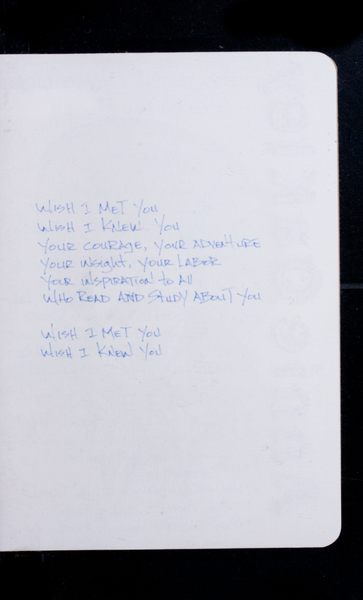 WISH I MET YOU
WISH I KNEW YOU
YOUR COURAGE, YOUR ADVENTURE
YOUR INSIGHT, YOUR LABOR
YOUR INSPIRATION to All
WHO READ AND STUDY ABOUT YOU
WISH I MET YOU
WISH I KNEW YOU